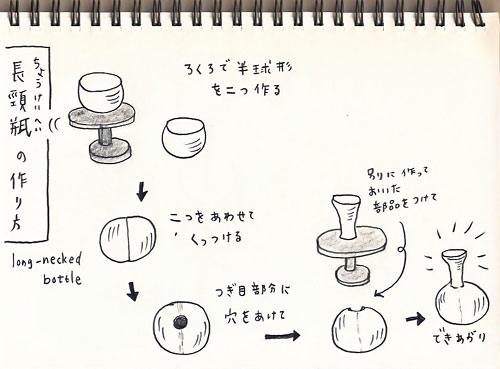 長頸瓶の作り方
ちょうけいへい
ろくろで半球形
を二つ作る
二つをあわせて
くっつける
long-necked
bottle
つぎ目部分に
穴をあけて
別に作って
おいた
部品をつけて
できあがり